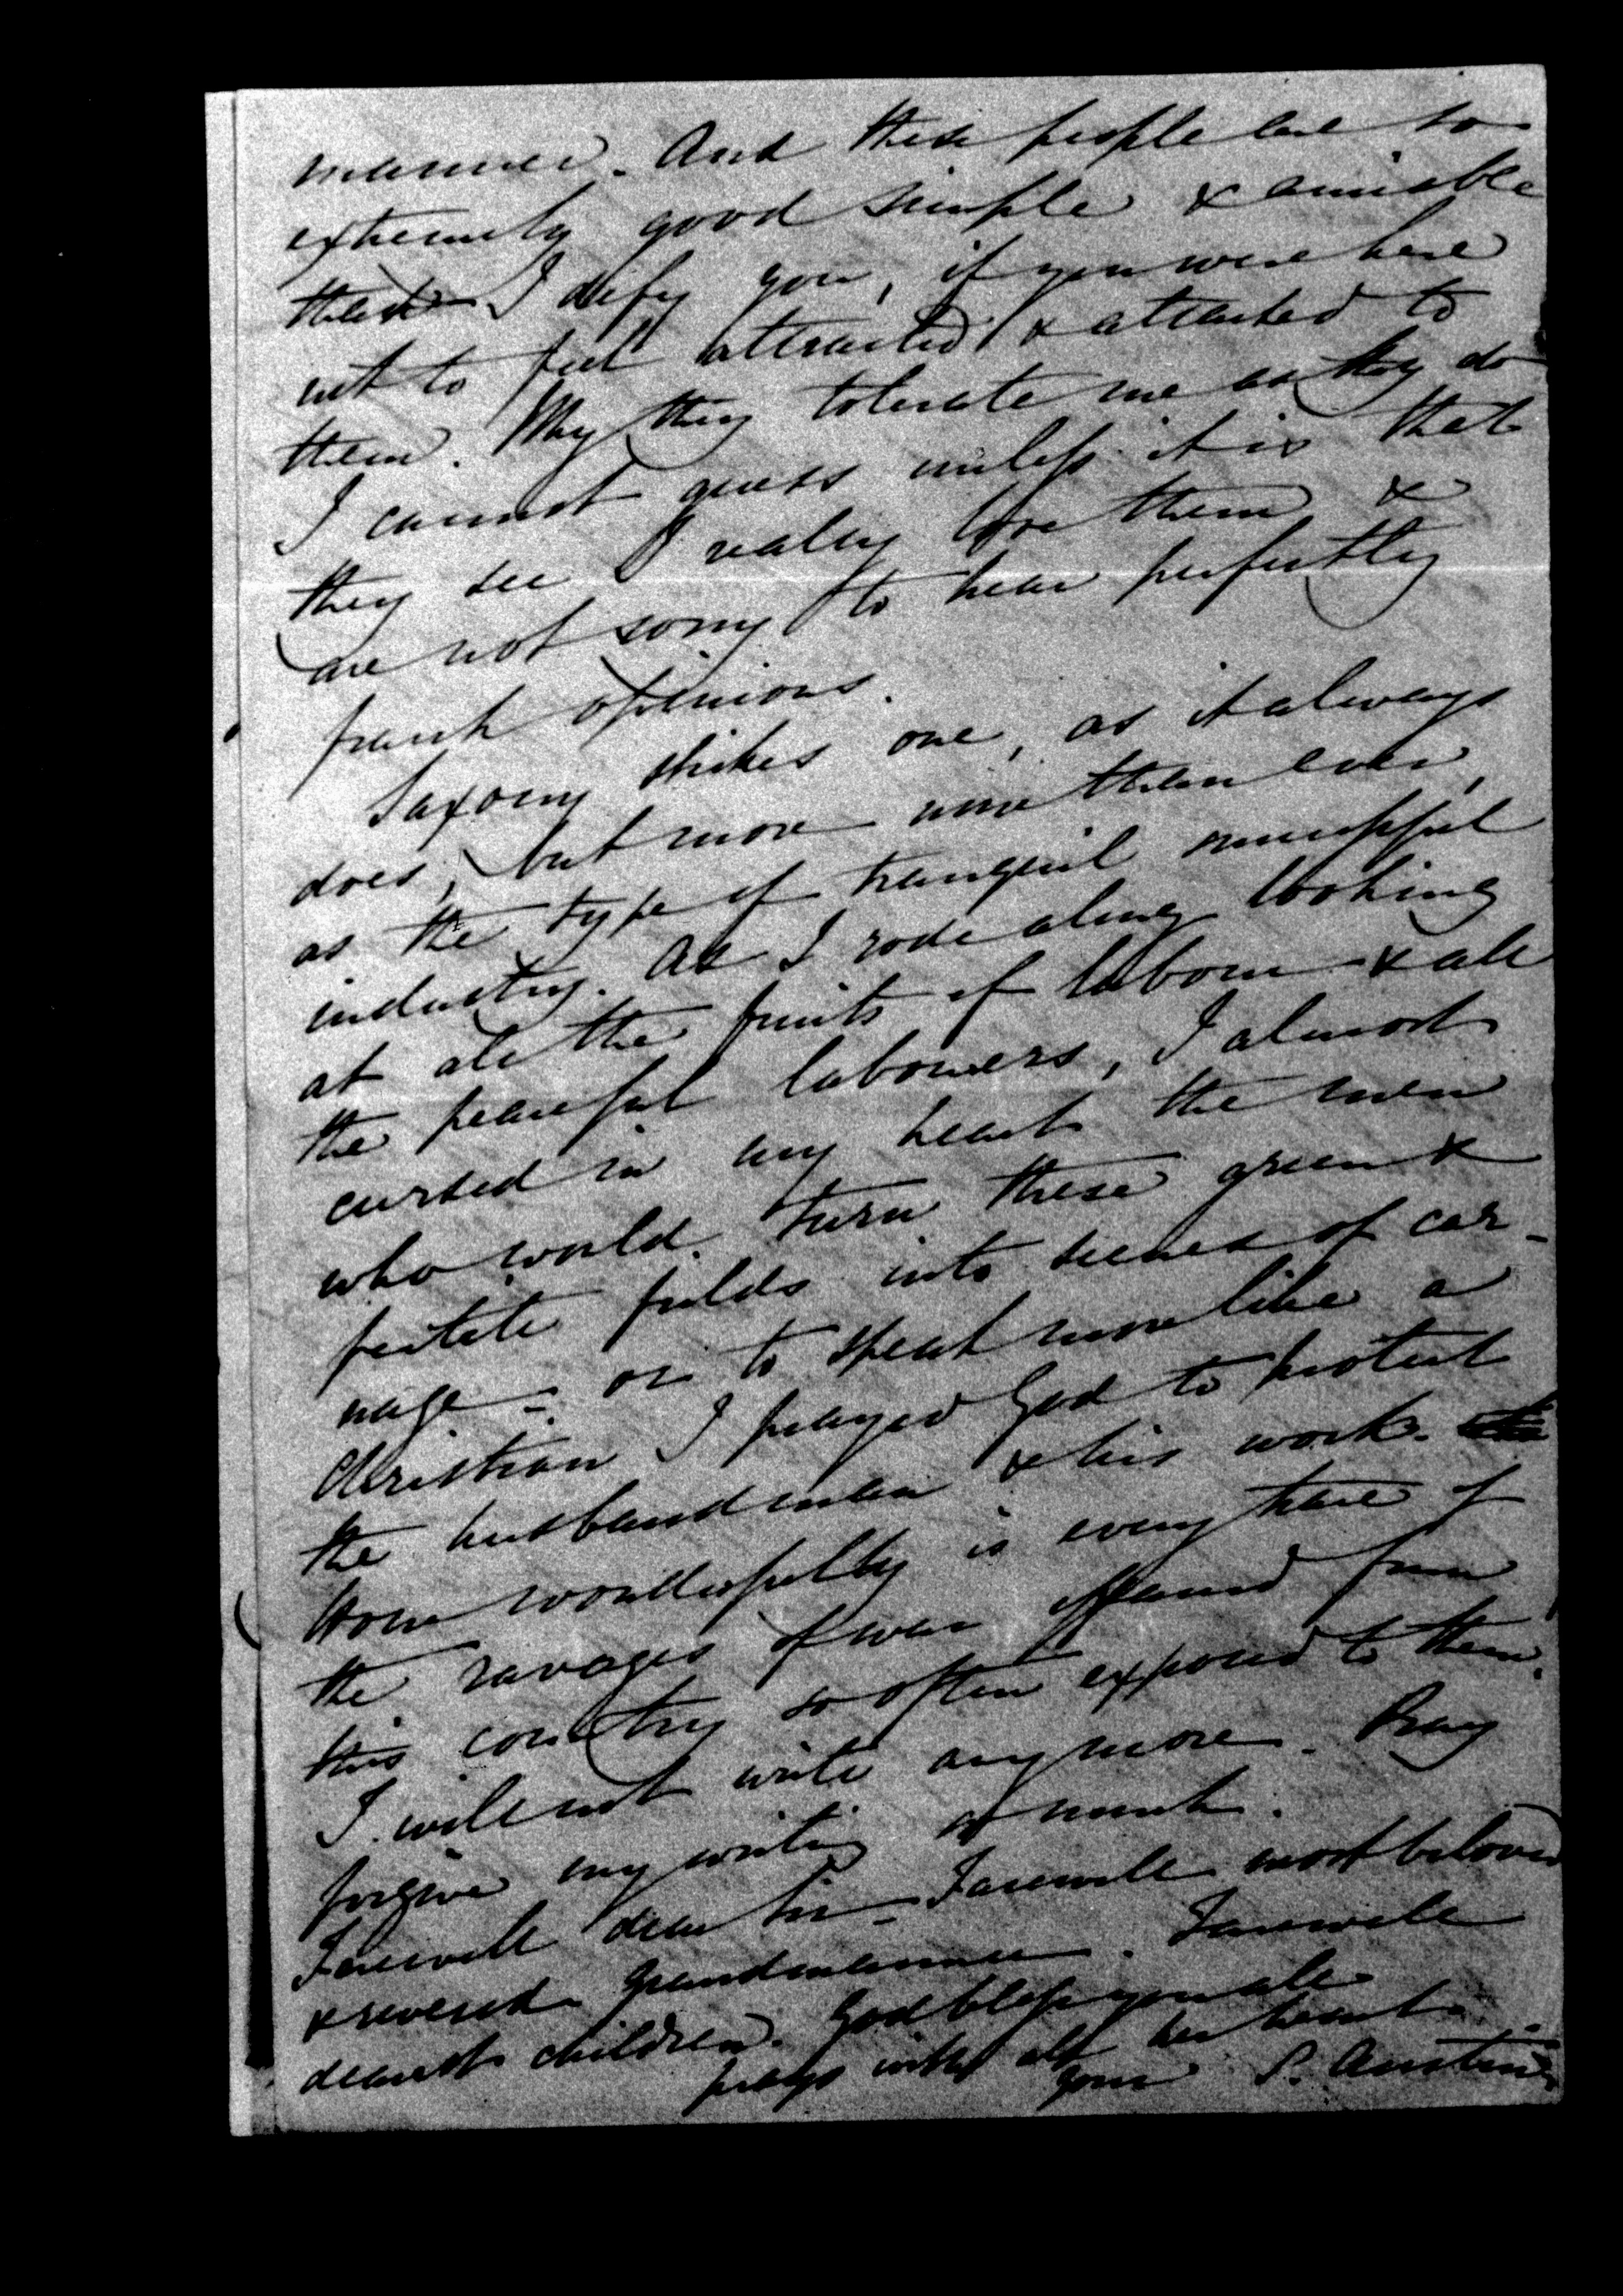 manner. And these people are so
extremely good simple & amiable
that I defy you, if you were here
not to feel attracted & attached to
them. Why they tolerate me as they do
I cannot guess unless it is that
they see I really love them &
are not sorry to hear perfectly
frank opinions.
Saxony strikes one, as it always
does, but more now than ever,
as the type of tranquil successful
industry. As I rode along looking
at all the fruits of labour & all
the peaceful labourers, I almost
cursed in my heart the men
who would turn these green &
fertile fields into scenes of car-
nage – or to speak more like a
Christian I prayed God to protect
the husbandman & his work.
How wonderfully is every trace of
the ravages of war effaced from
this country so often exposed to them.
I will not write any more. Pray
forgive my writing so much.
Farewell dear Sir – Farewell most beloved
& revered Grandmamma. Farewell
dearest children. God bless you all
prays with all her heart
your S. Austin